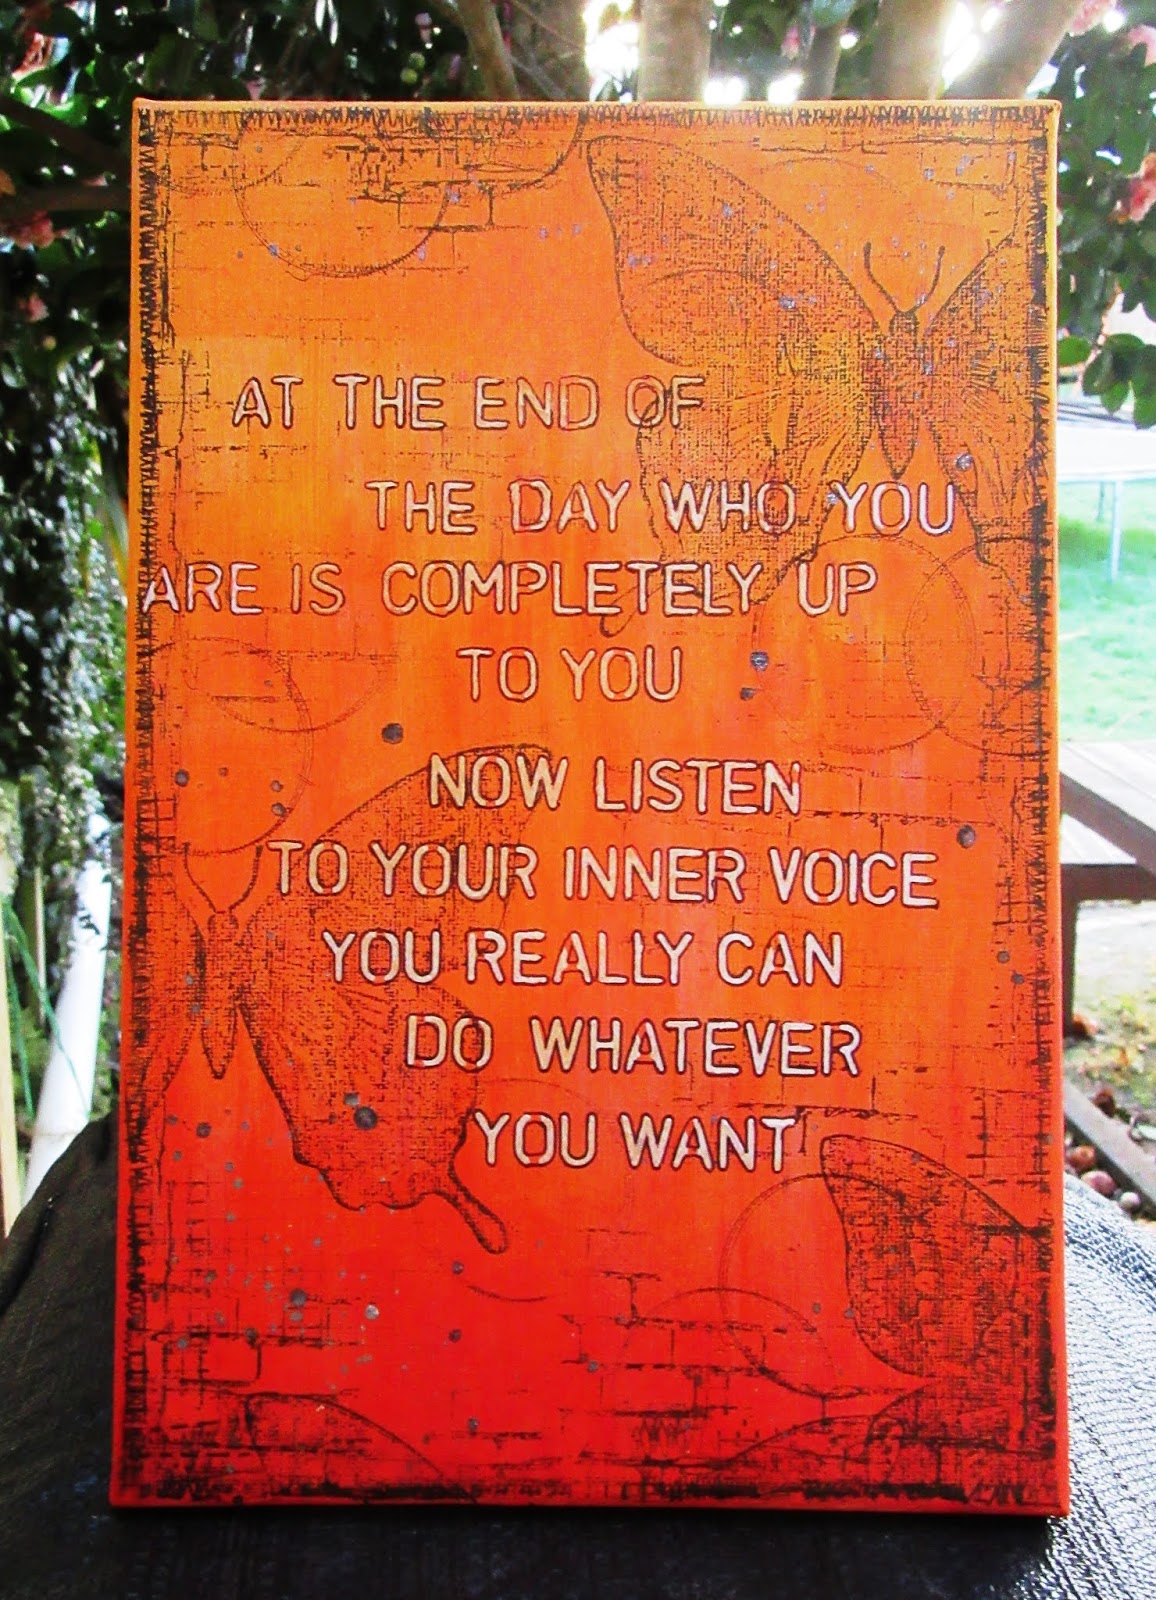 AT THE END OF
THE DAY WHO YOU
ARE IS COMPLETELY UP
TO YOU
NOW LISTEN
TO YOUR INNER VOICE
YOU REALLY CAN
DO WHATEVER
YOU WANT